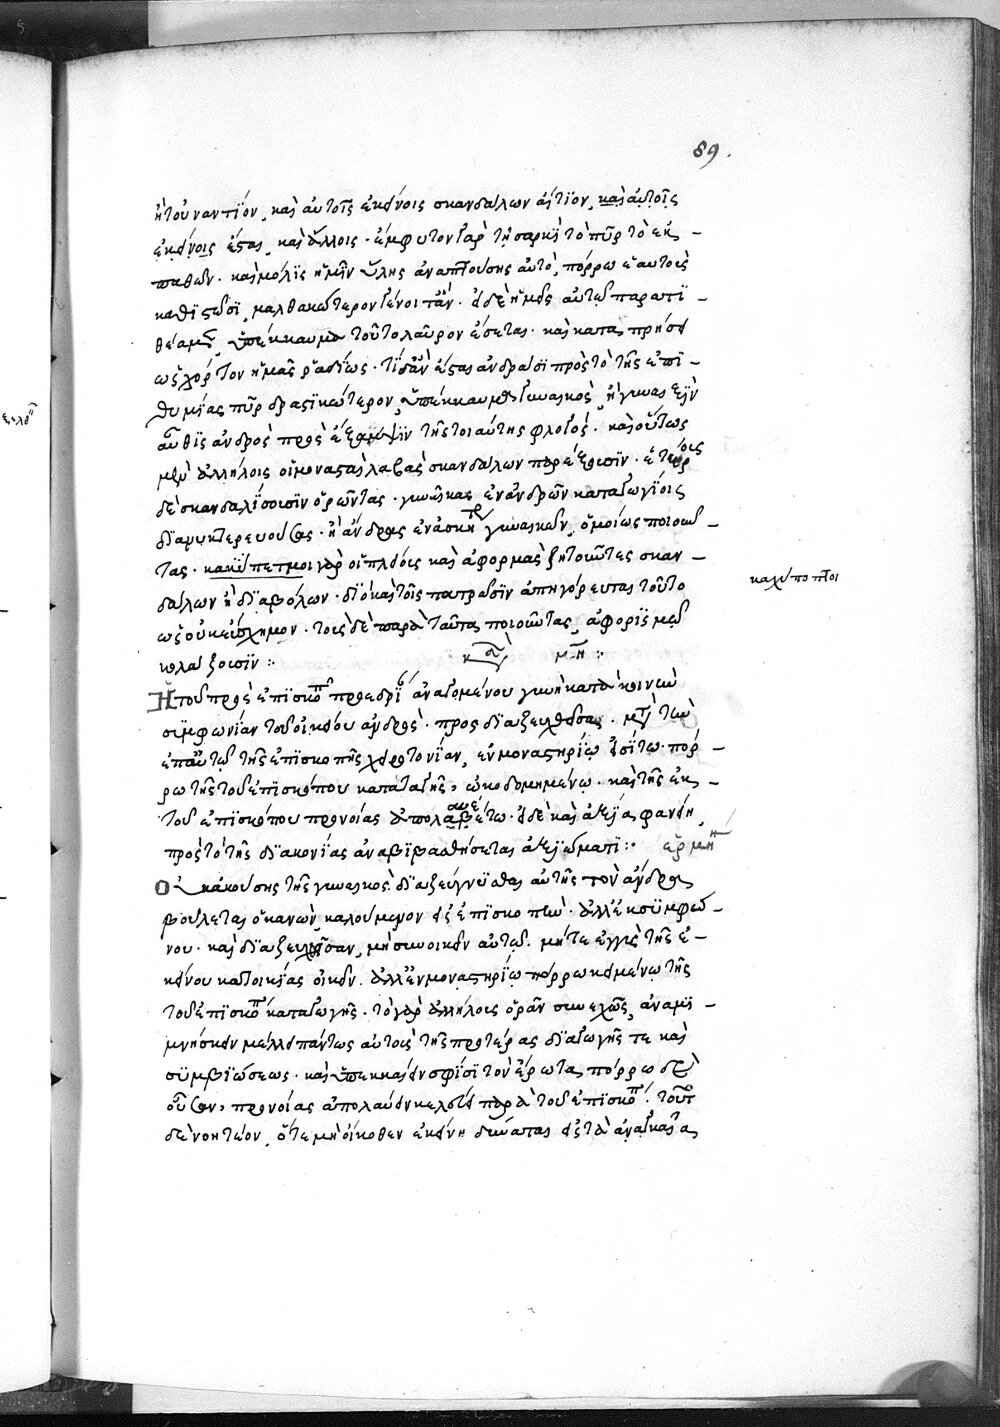 89.
ἢ τοὐναντίον, καὶ αὐτοῖς ἐκείνοις σκανδάλων αἴτιον, καὶ αὐτοῖς
ἐκείνοις ἔσται, καὶ ἄλλοις· ἔμφυτον γὰρ τῇ σαρκὶ τὸ πῦρ τὸ ἐκ
παθῶν· καὶ μόλις ἡμῖν ὕλης ἀναπτούσης αὐτὸ, πόρρω ἑαυτοὺς
καθιστῶσι, μαλθακώτερον γένοιτ' ἄν· εἰ δὲ ἡμεῖς αὐτῷ παραπι
θείαμεν, ὑπέκκαυμα τοῦτο λαῦρον ἔσεται· καὶ καταπρήσει
ὡς χόρτον ἡμᾶς ῥαδίως· τί δ' ἂν ἔσται ἀνδράσι πρὸς τὸ τῆς ἐπι
θυμίας πῦρ δραστικώτερον, ὑπέκκαυμα γυναικὸς, ἢ γυναιξὶν
αὖθις ἀνδρὸς πρὸς ἔξαψιν τῆς τοιαύτης φλογός· καὶ οὕτως
μὲν ἀλλήλοις οἱ μονασταὶ λαβὰς σκανδάλων παρέξουσιν· ἑτέροις
δὲ σκανδαλίσουσιν ὁρῶντας· γυναῖκας ἐν ἀνδρῶν καταγωγίοις
διανυκτερευούσας· ἢ ἄνδρας ἐν ἀσκητρ γυναικῶν, ὁμοίως ποιοῦν
τας· κακύπετμοι γὰρ οἱ πλείους καὶ ἀφορμὰς ζητοῦντες σκαν
καχύποπτοι
δάλων ἢ διαβολῶν· διὸ καὶ τοῖς πατράσιν ἀπηγόρευται τοῦτο
ὡς οὐκ εὔσχημον· τοὺς δὲ παρὰ ταῦτα ποιοῦντας, ἀφορισμῷ
κολάζουσιν:
κα μη:
Ἡ τοῦ πρὸς ἐπισκοπ προεδρί ἀναγομένου γυνὴ κατὰ κοινὴν
συμφωνίαν τοῦ οἰκείου ἀνδρὸς· προσδιαζευχθεῖσα· μετὰ τὴν
ἐπ' αὐτῷ τῆς ἐπισκοπῆς χειροτονίαν, ἐν μοναστηρίῳ εἰσίτω πόρ
ρω τῆς τοῦ ἐπισκόπου καταγωγῆς, ᾠκοδομημένῳ· καὶ τῆς ἐκ
τοῦ ἐπισκόπου προνοίας ἀπολαυέτω· εἰ δὲ καὶ ἀξία φανείη,
πρὸς τὸ τῆς διακονίας ἀναβιβασθήσεται ἀξίωμα: ἑρμη
Οὐκ ἀκούσης τῆς γυναικὸς διαζεύγνυσθαι αὐτῆς τὸν ἄνδρα
βούλεται ὁ κανὼν, καλούμενον εἰς ἐπισκοπὴν· ἀλλ' ἐκ συμφώ
νου· καὶ διαζευχθεῖσαν, μὴ συνοικεῖν αὐτῷ· μήτε ἐγγὺς τῆς ἐ
κείνου κατοικίας οἰκεῖν. ἀλλ' ἐν μοναστηρίῳ πόρρω κειμένῳ τῆς
τοῦ ἐπισκοπ καταγωγῆς· τὸ γὰρ ἀλλήλους ὁρᾶν συνεχῶς, ἀναμι
μνήσκειν μέλλει πάντως αὐτοὺς τῆς προτέρας διαγωγῆς τε καὶ
συμβιώσεως· καὶ ὑπεκκαίειν σφίσι τὸν ἔρωτα, πόρρω δὲ
οὖσαν, προνοίας ἀπολαύειν κελεύει παρὰ τοῦ ἐπισκοπ. τοῦτ
δὲ νοητέον, ὅτε μὴ οἴκοθεν ἐκείνη δύναται εἰς τὰ ἀναγκαῖα